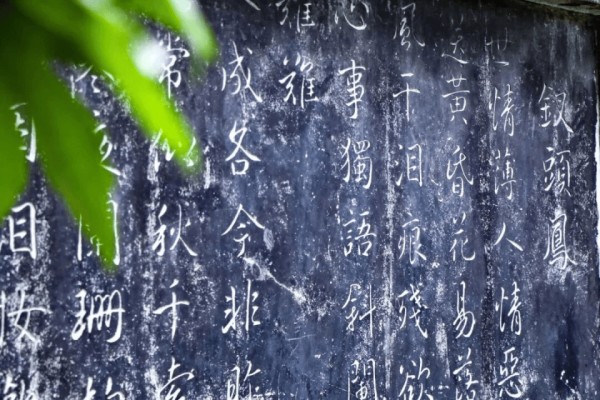 釵頭鳳
世情薄人情惡
送黄昏花易落
風干泪痕殘欲
心事獨語斜闌
難難
成各今非昨
常似秋千索
夜闌珊
泪妝